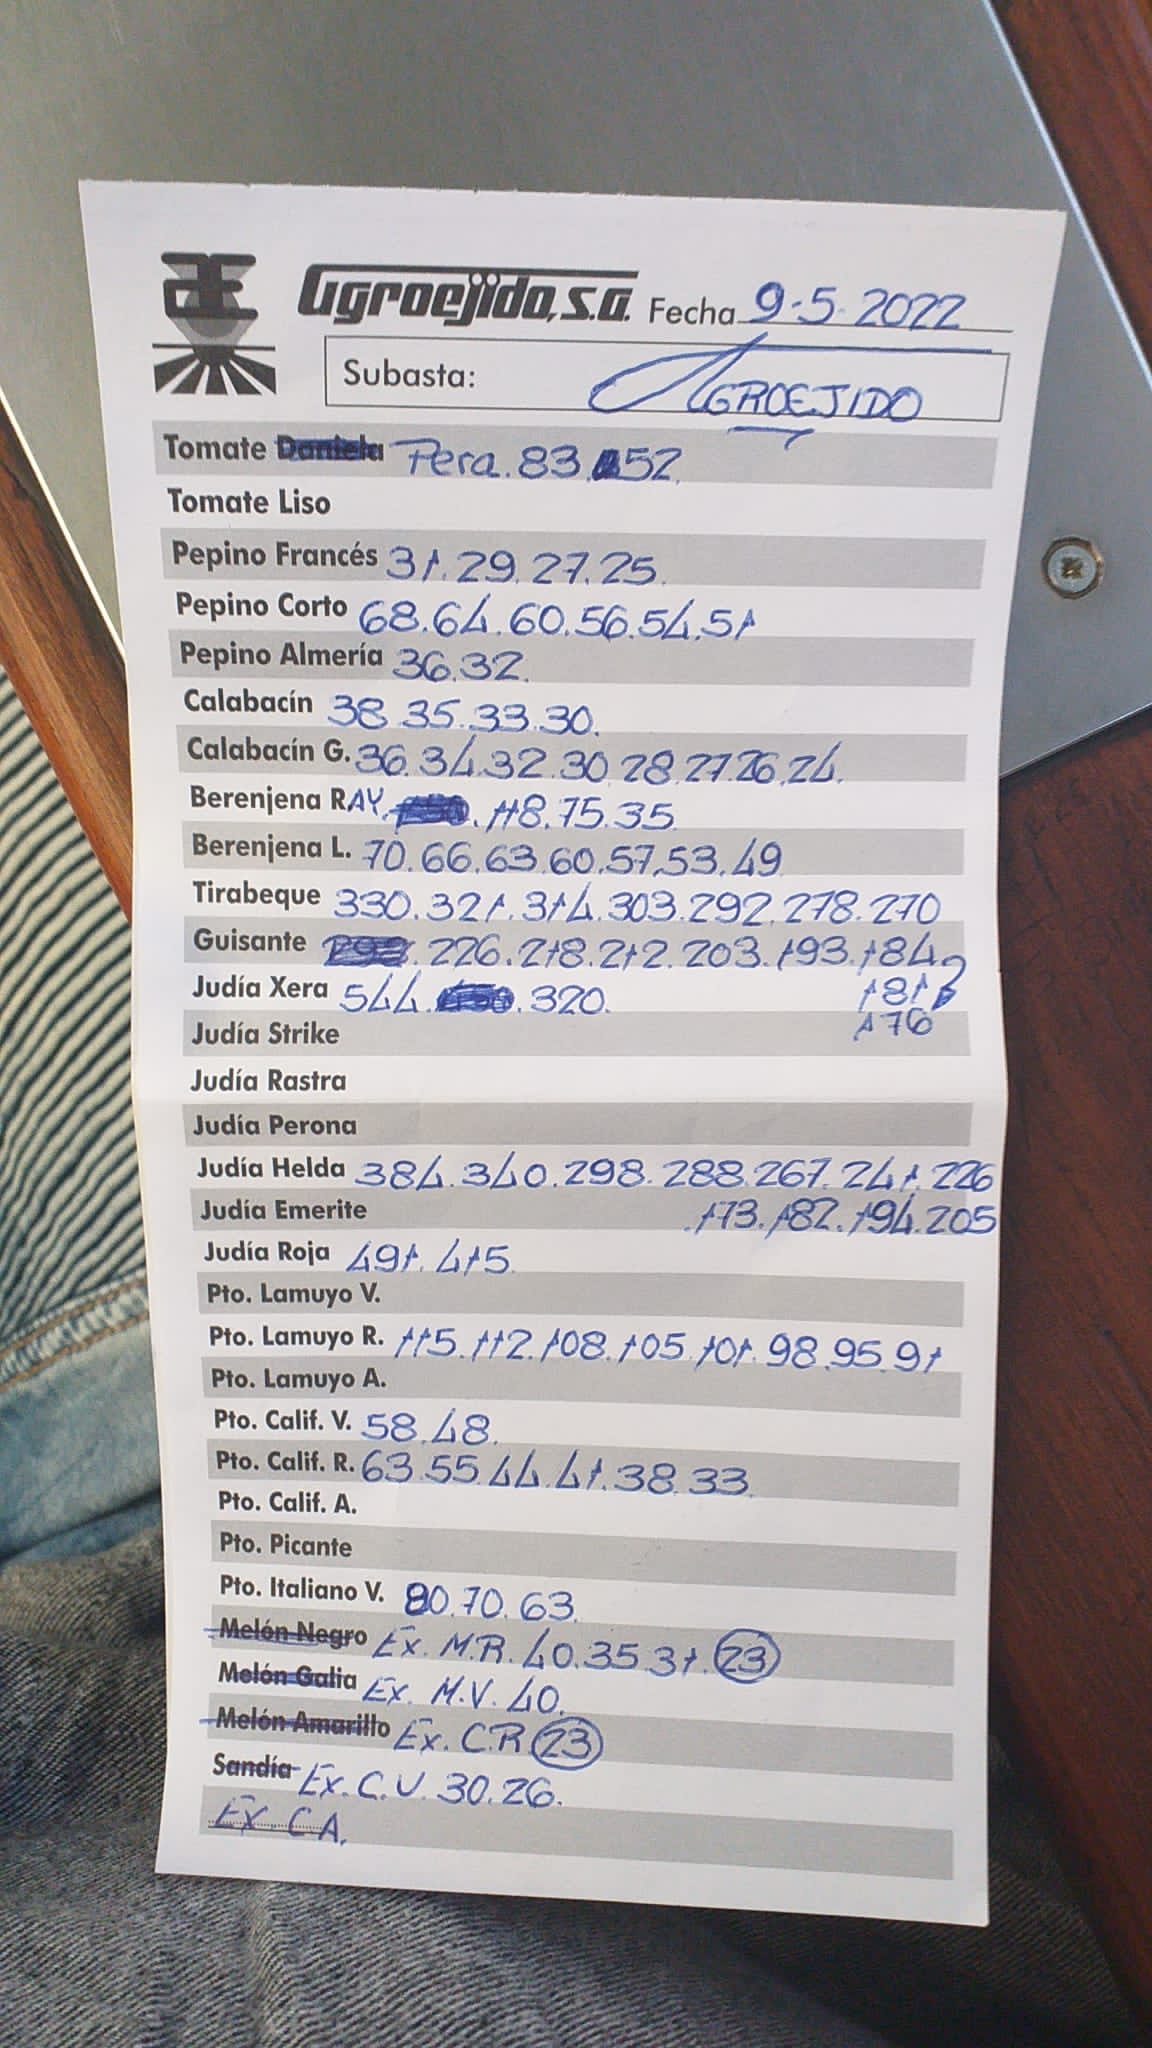 Agroejido, S.A. Fecha 9-5-2022
Subasta: AGROEJIDO
Tomate Daniela Pera. 83. 52.
Tomate Liso
Pepino Francés 31. 29. 27. 25.
Pepino Corto 68. 64. 60. 56. 54. 51
Pepino Almería 36. 32.
Calabacín 38. 35. 33. 30.
Calabacín G. 36. 34. 32. 30. 28. 27. 26. 24.
Berenjena RAY. 118. 75. 35.
Berenjena L. 70. 66. 63. 60. 57. 53. 49
Tirabeque 330. 321. 314. 303. 292. 278. 270
Guisante 226. 218. 212. 203. 193. 184
Judía Xera 544. 320. 181
Judía Strike 176
Judía Rastra
Judía Perona
Judía Helda 384. 340. 298. 288. 267. 241. 226
Judía Emerite 173. 182. 194. 205
Judía Roja 491. 415
Pto. Lamuyo V.
Pto. Lamuyo R. 115. 112. 108. 105. 101. 98. 95. 91
Pto. Lamuyo A.
Pto. Calif. V. 58. 48.
Pto. Calif. R. 63. 55. 44. 41. 38. 33.
Pto. Calif. A.
Pto. Picante
Pto. Italiano V. 80. 70. 63.
Melón Negro Ex. M.R. 40. 35. 31. 23
Melón Galia Ex. M.V. 40.
Melón Amarillo Ex. C.R 23
Sandía Ex. C.V. 30. 26.
Ex. CA.